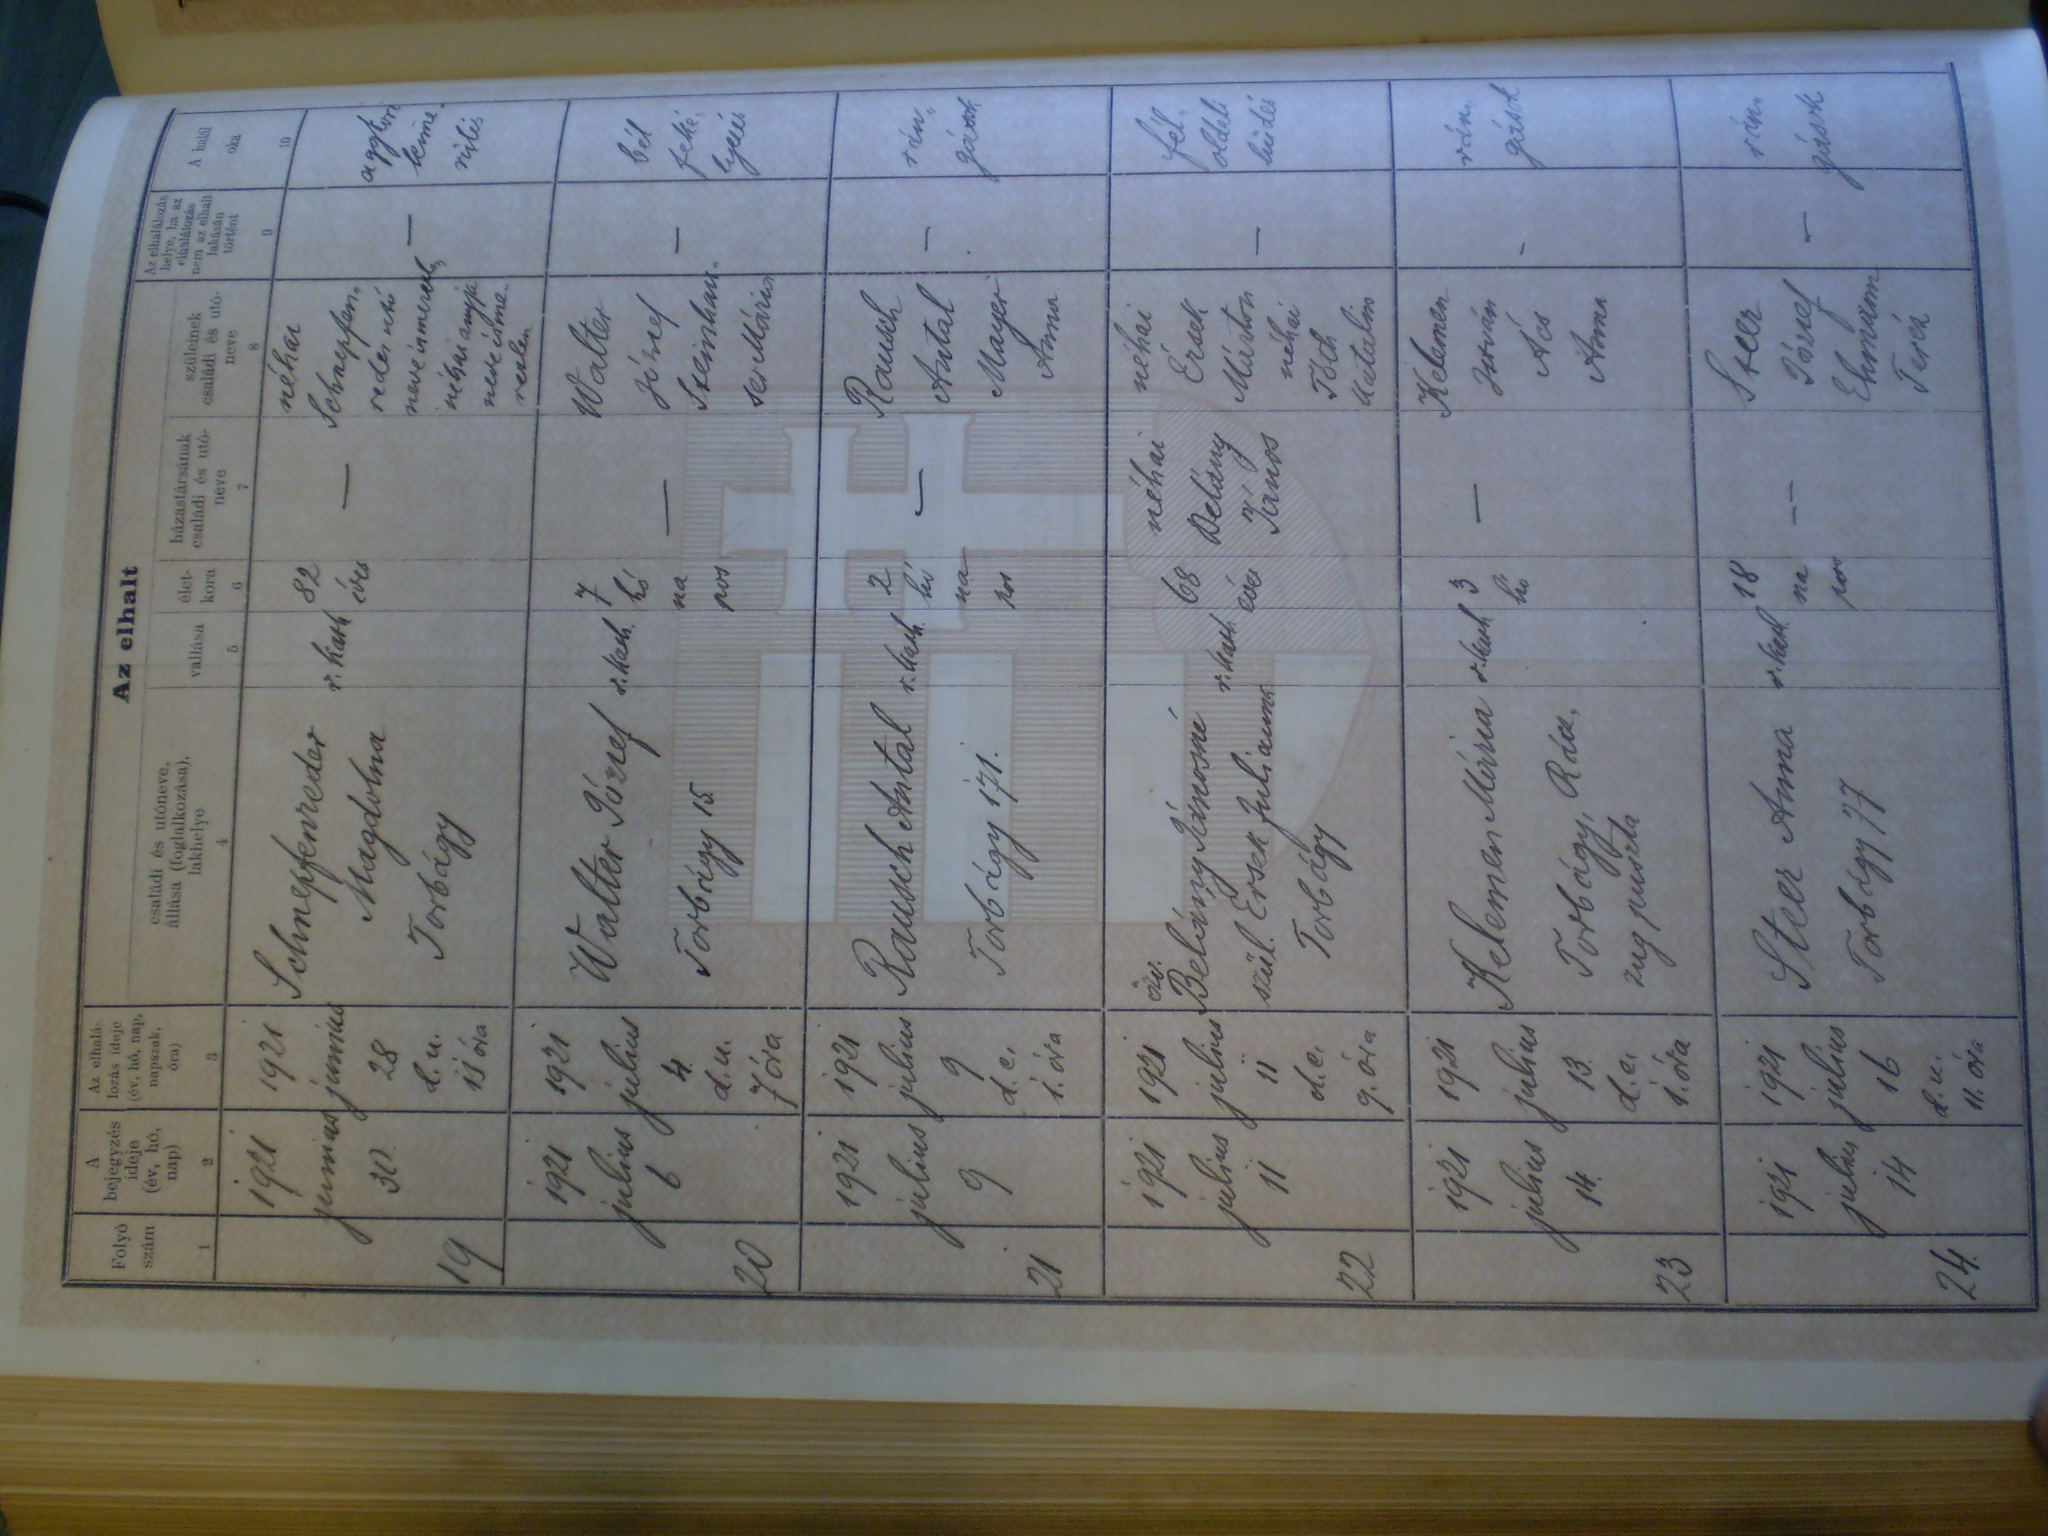 Az elhalt
Folyó
szám
1
A
bejegyzés
ideje
(év, hó,
nap)
2
Az elhalá-
lozás ideje
(év, hó, nap,
napszak,
óra)
3
családi és utóneve,
állása (foglalkozása),
lakhelye
4
vallása
5
élet-
kora
6
házastársának
családi és utó-
neve
7
szüleinek
családi és utó-
neve
8
Az elhalálozás
helye, ha az
elhalálozás
nem az elhalt
lakásán
történt
9
A halál
oka
10
19
1921
junius
30.
1921
junius
28
d. u.
óra
Schnepfenreder
Magdolna
Torbágy
r. kath
82
éves
—
néhai
Schnepfen,
reder
neve ismeretl,
néhai anyja
neve isme-
retlen
—
20
1921
julius
6
1921
julius
4.
d. u.
7 óra
Walter József
Torbágy 15
r. kath.
7
hó
na
pos
—
Walter
József
Mária
—
bél
21
1921
julius
9
1921
julius
9
d. e.
1. óra
Rausch Antal
Torbágy 171.
r. kath.
2
hó
na
pos
—
Rausch
Antal
Mayer
Anna
—
rán,
gások
22
1921
julius
11
1921
julius
11
d. e.
9. óra
özv.
Belány Jánosné
szül. Érsek Julianna
Torbágy
r. kath.
68
éves
néhai
Belány
János
néhai
Érsek
Márton
néhai
Tóth
Katalin
—
fél,
oldali
hüdés
23
1921
julius
14.
1921
julius
13.
d. e.
1. óra
Kelemen Mária
Torbágy,
puszta
r. kath
3
hó
—
Kelemen
István
Ács
Anna
-
rán,
gások
24.
1921
julius
14
1921
julius
16
d. u.
11. óra
Steer Anna
Torbágy 77
r. kath.
18
na
pos
—
Steer
József
Ehmann
Teréz
—
rán,
gások